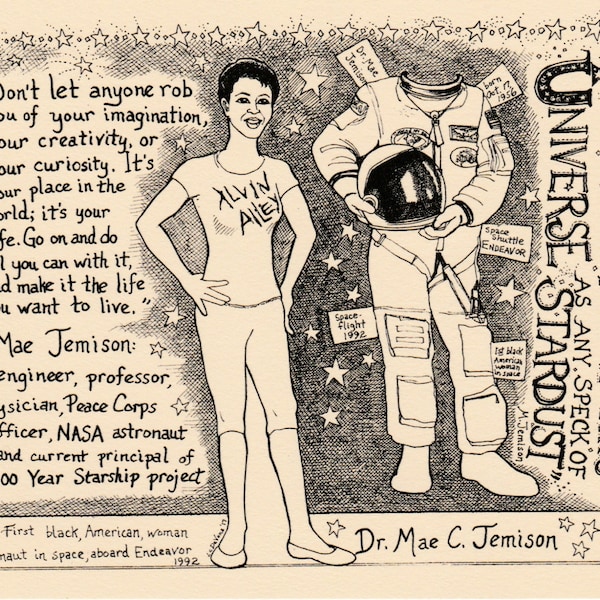 Don't let anyone rob
you of your imagination,
your creativity, or
your curiosity. It's
your place in the
world; it's your
life. Go on and do
all you can with it,
and make it the life
you want to live."
Mae Jemison:
engineer, professor,
physician, Peace Corps
officer, NASA astronaut
and current principal of
100 Year Starship project
First black, American, woman
naut in space, aboard Endeavor
1992
ALVIN
AILEY
Dr. Mae
Jemison
born
Oct. 17
1956
Space
Shuttle
ENDEAVOR
Space-
flight
1992
1st black
American
woman
in space
UNIVERSE
AS ANY SPECK OF
STARDUST"
M. Jemison
Dr. Mae C. Jemison